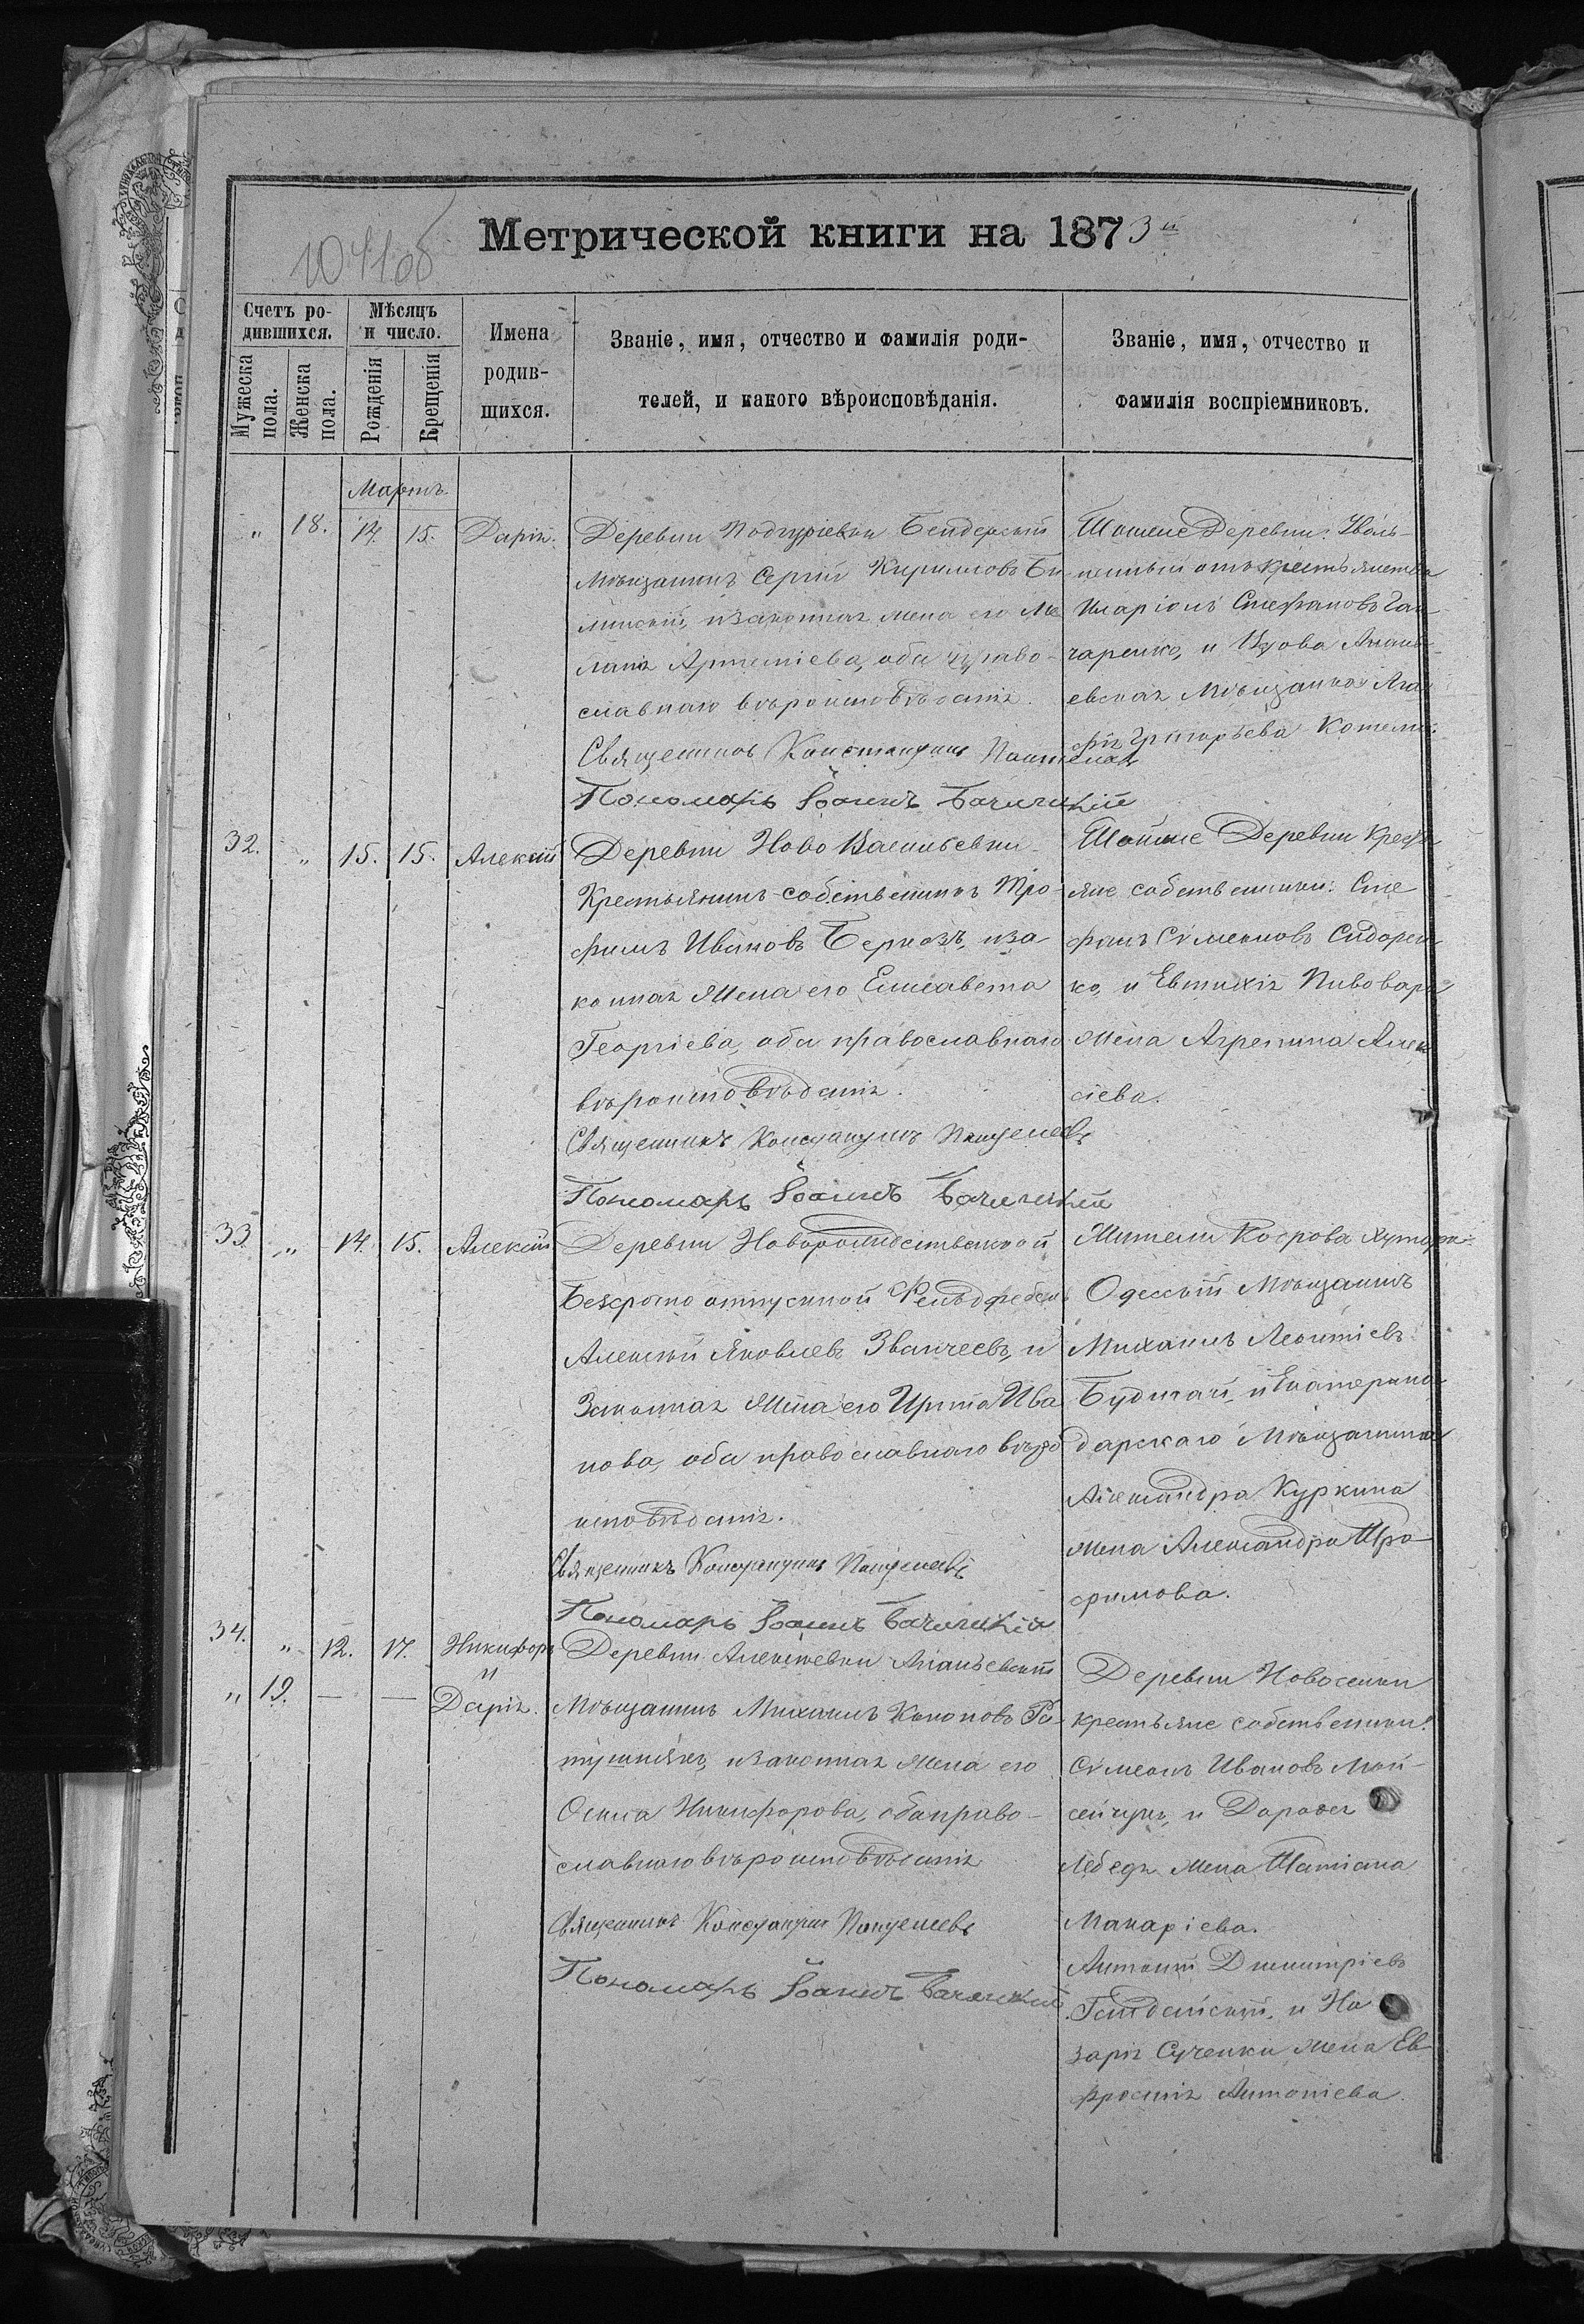 1041об
Метрической книги на 1873й
Счетъ ро-
дившихся.
Мѣсяцъ
и число.
Имена
родив-
шихся.
Званіе, имя, отчество и фамилія роди-
телей, и какого вѣроисповѣданія.
Званіе, имя, отчество и
фамилія воспріемниковъ.
Мужеска
пола.
Женска
пола.
Рожденія
Крещенія
Мартъ
" 18. 14. 15. Дарія.
Деревни Бендерскій
Мѣщанинъ Сергій Кириловъ
и законная жена его Ме
ланія Артеміева, оба право-
славнаго вѣроисповѣданія.
Священникъ Константинъ
Пономарь Іоаннъ
Тойже Деревни: Уволь-
ненный отъ крестьянства
Иларіонъ Стефановъ Гон
чаренко, и Вдова Анань-
евская Мѣщанка Ага
фія Григорьева
32. " 15. 15. Алексій
Деревни Ново Васильевки
Крестьянинъ-собственникъ Тро-
фимъ Ивановъ и за
конная жена его Елисавета
Георгіева, оба православнаго
вѣроисповѣданія.
Священникъ Константинъ
Пономарь Іоаннъ
Тойже Деревни Кресть
яне собственники: Сте
фанъ Сѵмеоновъ Сидорен
ко, и Евтихія Пивовара
жена Агрепина Алек
сіева.
33 " 14. 15. Алексій
Деревни Новорождественской
Безсрочно отпускной Фельдфебель
Алексій Яковлевъ Званчеевъ, и
Законная жена его Ирина Ива
нова, оба православнаго вѣро
исповѣданія.
Священникъ Константинъ
Пономарь Іоаннъ
Жители Хутора
Одесскій Мѣщанинъ
Михаилъ Леонтіевъ
и Екатерино
дарскаго Мѣщанина
Александра Куркина
жена Александра Тро-
фимова.
34. " 12. 17. Никифоръ
и
" 19. — — Дарія.
Деревни Алексѣевки Ананьевскій
Мѣщанинъ Михаилъ Кононовъ Ра
тушнякъ, и законная жена его
Ксенія Никифорова, оба право-
славнаго вѣроисповѣданія
Священникъ Константинъ
Пономарь Іоаннъ
Деревни Новоселки
крестьяне собственники:
Сѵмеонъ Ивановъ Мой-
сейчукъ, и Дороѳея
Лебедя жена Татіана
Макаріева.
Антоній Димитріевъ
и На
зарія Сученки жена Ев
фросинія Антоніева.